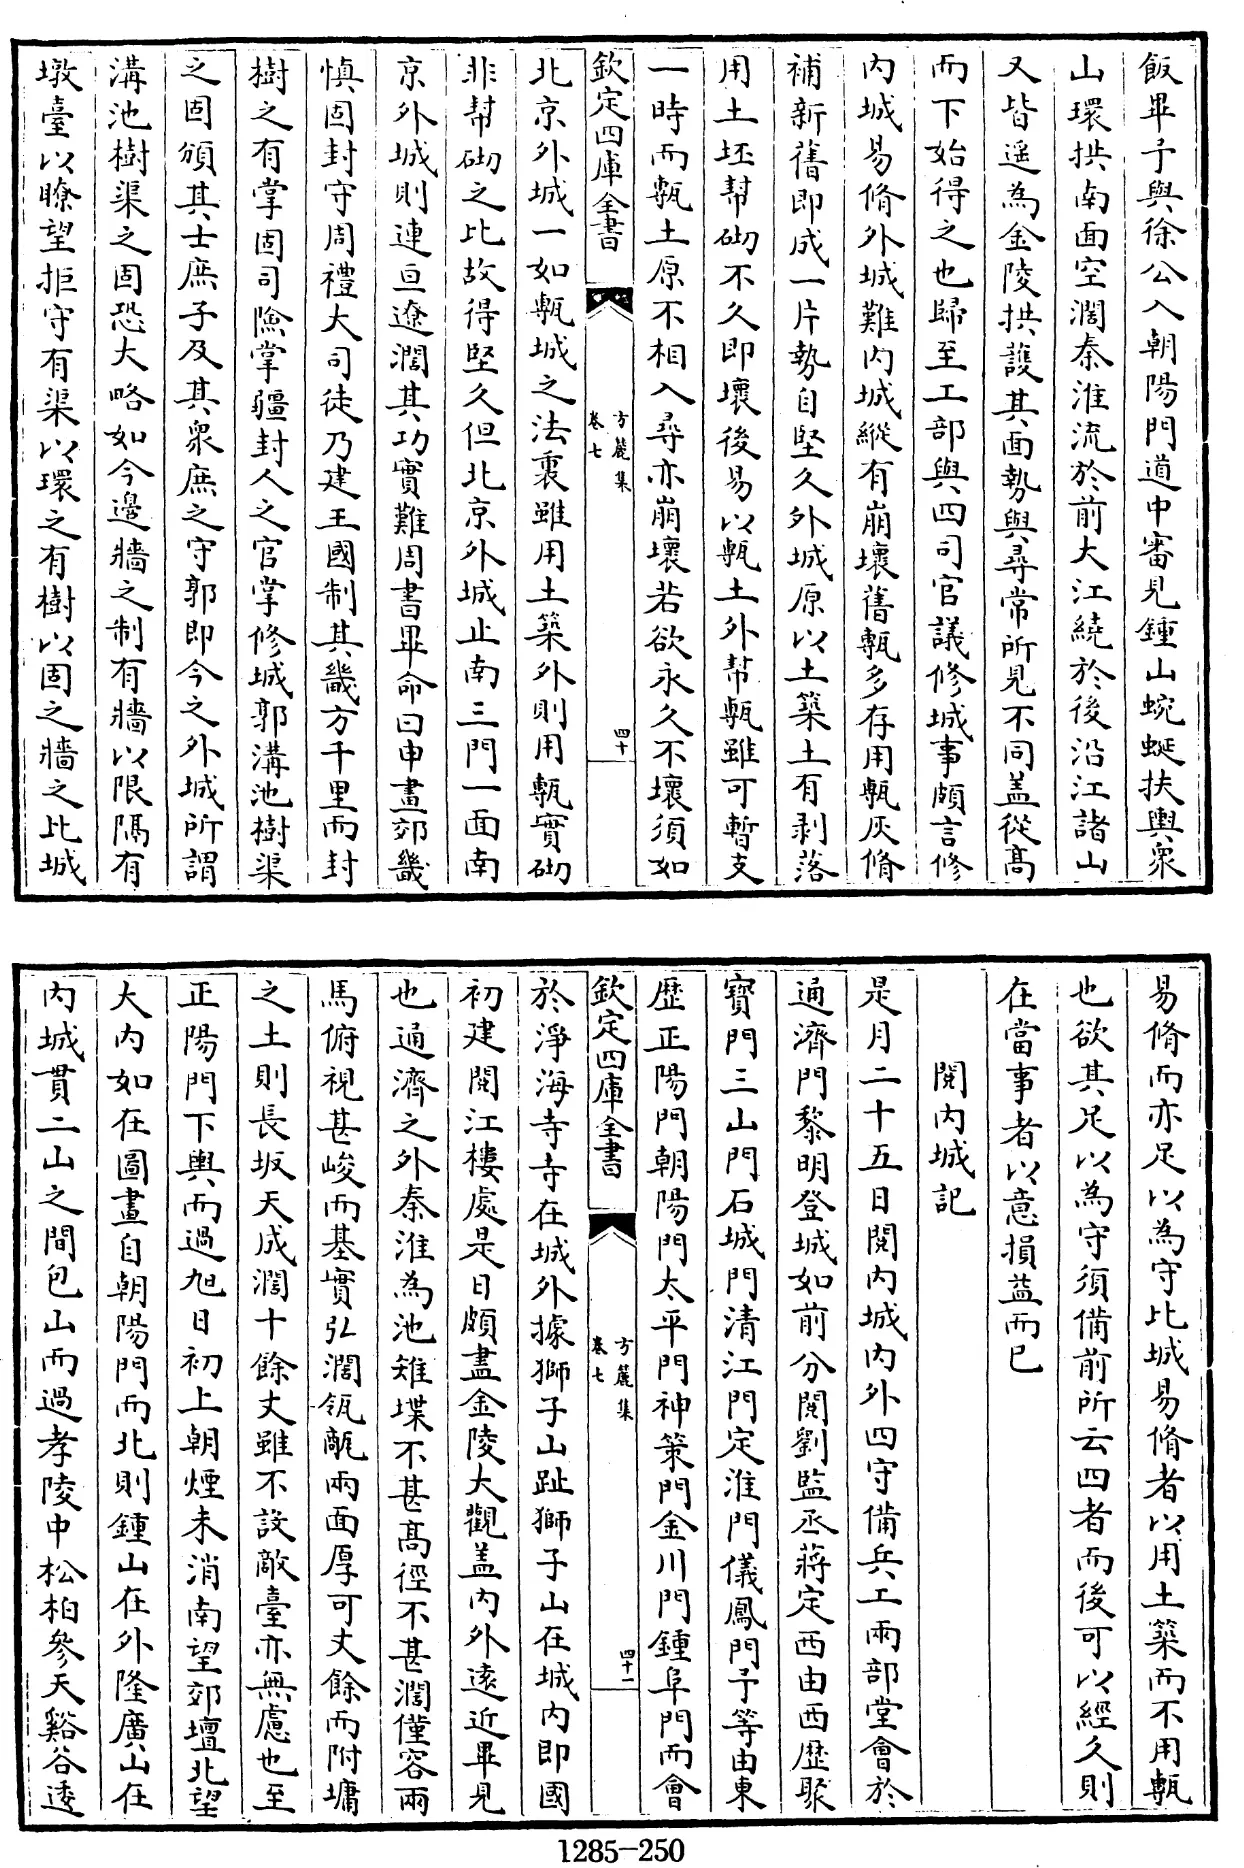 飯畢予與徐公入朝陽門道中審見鍾山蜿蜒扶輿衆
山環拱南面空濶秦淮流於前大江繞於後沿江諸山
又皆遥為金陵拱護其面勢與尋常所見不同盖從髙
而下始得之也歸至工部與四司官議修城事頗言修
内城易脩外城難内城縱有崩壞舊甎多存用甎灰脩
補新舊即成一片勢自堅久外城原以土築土有剥落
用土坯幫砌不久即壞後易以甎土外幇甎雖可暫支
一時而甎土原不相入尋亦崩壞若欲永久不壞須如
欽定四庫全書
方麓集
卷七
四十
北京外城一如甎城之法裏雖用土築外則用甎實砌
非幇砌之比故得堅久但北京外城止南三門一面南
京外城則連亘遼濶其功實難周書畢命曰申畫郊畿
慎固封守周禮大司徒乃建王國制其畿方千里而封
樹之有掌固司險掌疆封人之官掌修城郭溝池樹渠
之固頒其士庶子及其衆庶之守郭即今之外城所謂
溝池樹渠之固恐大略如今邉牆之制有牆以限隔有
墩臺以瞭望拒守有渠以環之有樹以固之牆之比城
易脩而亦足以為守比城易脩者以用土築而不用甎
也欲其足以為守須備前所云四者而後可以經久則
在當事者以意損益而已
閱内城記
是月二十五日閱内城内外四守備兵工兩部堂會於
通濟門黎明登城如前分閱劉監丞蔣定西由西歴聚
寳門三山門石城門清江門定淮門儀鳳門予等由東
歴正陽門朝陽門太平門神策門金川門鍾阜門而會
欽定四庫全書
方麓集
卷七
四十一
於淨海寺寺在城外據獅子山趾獅子山在城内即國
初建閱江樓處是日頗盡金陵大觀盖内外遠近畢見
也通濟之外秦淮為池雉堞不甚髙徑不甚濶僅容兩
馬俯視甚峻而基實弘濶瓴甋兩面厚可丈餘而附墉
之土則長坂天成濶十餘丈雖不設敵臺亦無慮也至
正陽門下輿而過旭日初上朝煙未消南望郊壇北望
大内如在圖畫自朝陽門而北則鍾山在外隆廣山在
内城貫二山之間包山而過孝陵中松柏參天谿谷逶
1285-250